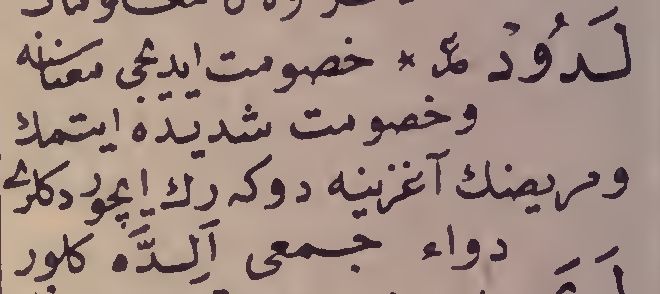 لَدُودْ * خصومت ايديجى معناسنه
وخصومت شديده ايتمك
ومريضك آغزينه دوكه رك ايچوردكلرى
دواء جمعى اَلِدَّه كلور